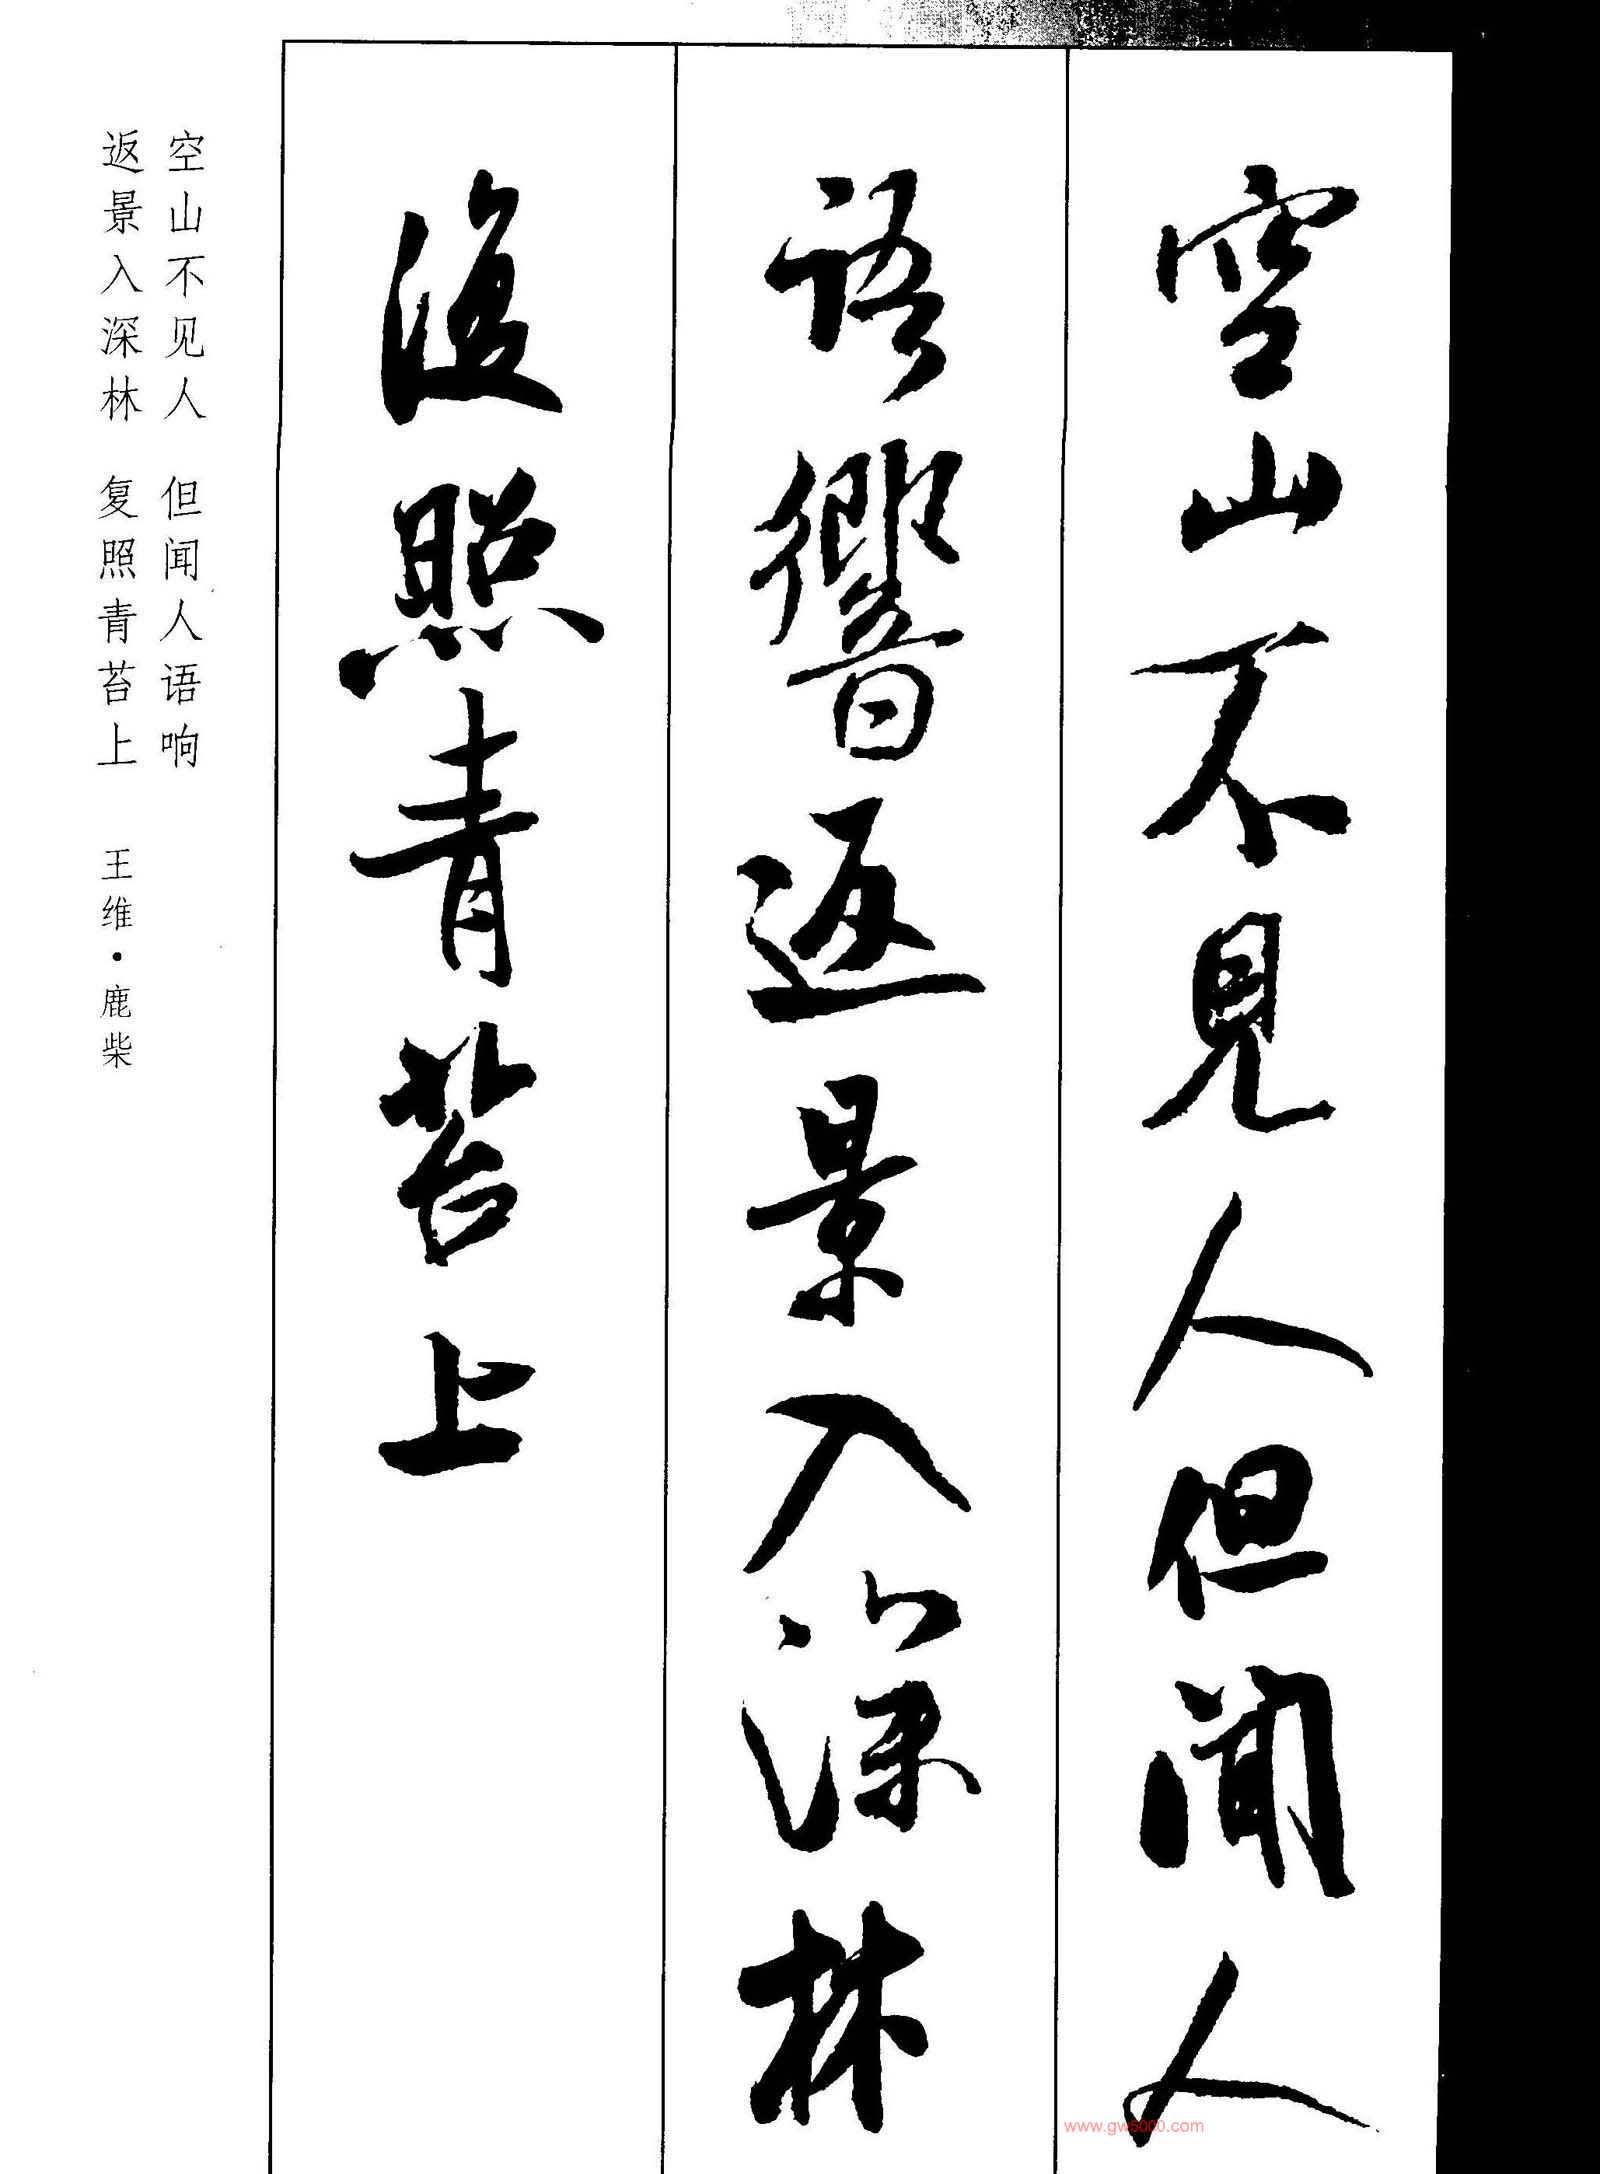 空山不見人但聞人
語響返景入深林
復照青苔上
空山不见人 但闻人语响
返景入深林 复照青苔上 王维·鹿柴
www.gw5000.com